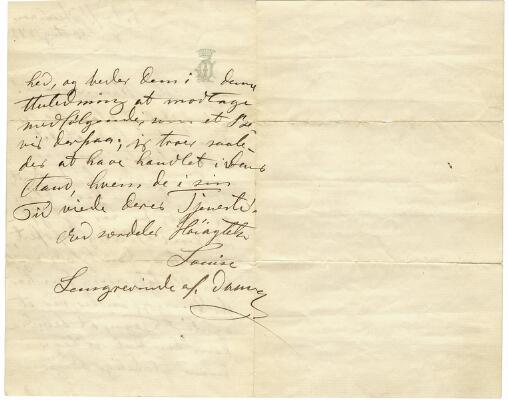 hed, og beder Dem i denne
Anledning at modtage
medfølgende som et Be
vis derpaa; jeg troer saale-
des at have handlet i Deres
Aand, hvem de i sin
Tid viede deres Tjeneste.
Med særdeles Høiagtelse
Louise
Lensgrevinde af Danne